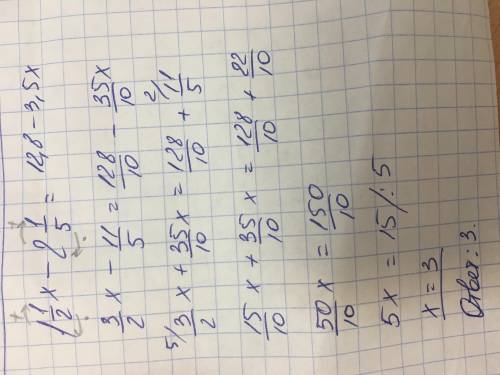 1 1/2 x - 2 1/5 = 12,8 - 3,5x
3/2 x - 11/5 = 128/10 - 35x/10
5/ 3/2 x + 35/10 x = 128/10 + 2/ 11/5
15/10 x + 35/10 x = 128/10 + 22/10
50/10 x = 150/10
5x = 15 /:5
x = 3
Ответ: 3.